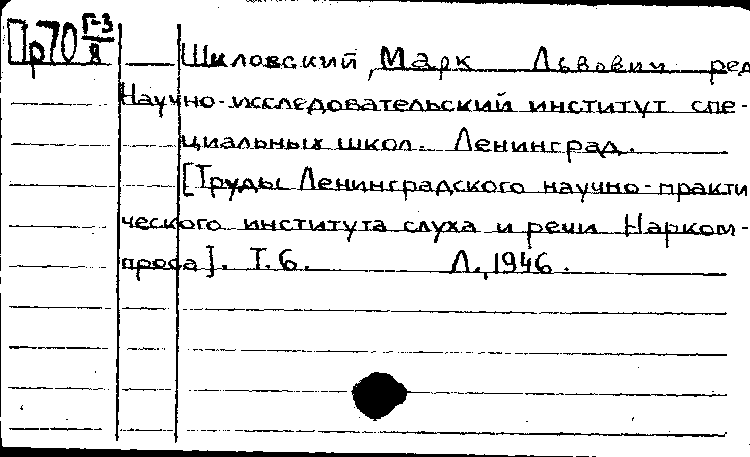 Пр70 Г-3/Я
Шиловский, Марк Львович ред
Научно-исследовательский институт спе-
циальных школ. Ленинград.
[Труды Ленинградского научно-практи
ческого института слуха и речи Нарком-
проса]. Т.6. Л., 1946.